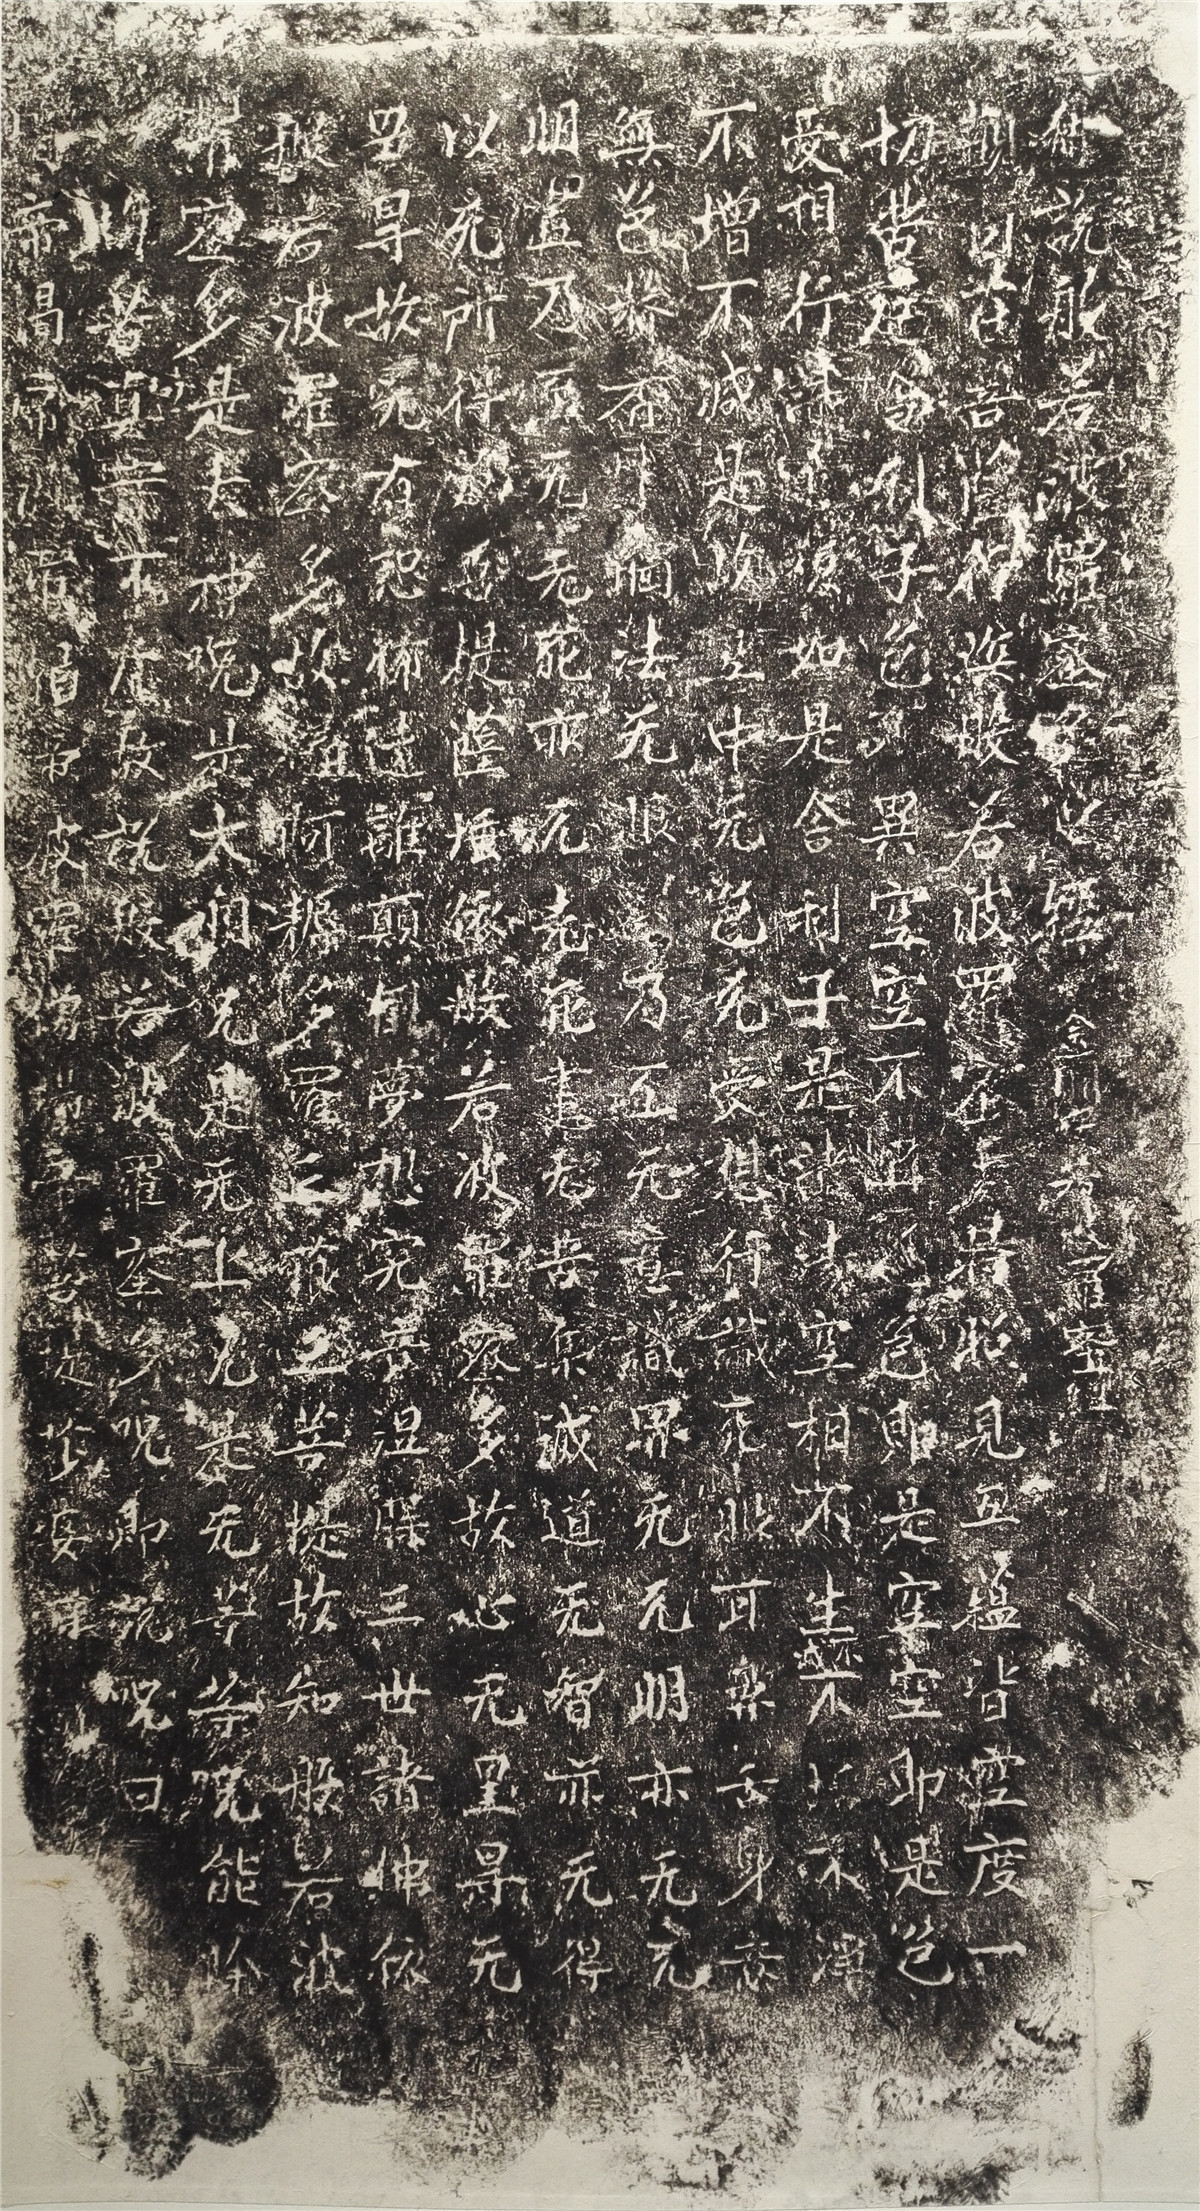 佛說般若波羅蜜多心經
觀自在菩薩行深般若波羅蜜多時照見五蘊皆空度一
切苦厄舍利子色不異空空不異色色則是空空即是色
受相行識亦復如是舍利子是諸法空相不生滅不垢不淨
不增不減是故空中无色无受想行識无眼耳鼻舌身意
無色聲香味觸法无眼界乃至无意識界无无明亦无无
明盡乃至无无死亦无老死盡无苦集滅道无智亦无得
以无所得故菩提薩埵依般若波羅蜜多故心无罣㝵无
罣㝵故无有恐怖遠離顛倒夢想究竟涅槃三世諸佛依
般若波羅蜜多故得阿耨多羅三藐三菩提故知般若波
羅蜜多是大神呪是大明呪是无上呪是无等等呪能除
一切苦真實不虛故說般若波羅蜜多呪即說呪曰
揭帝揭帝波羅揭帝